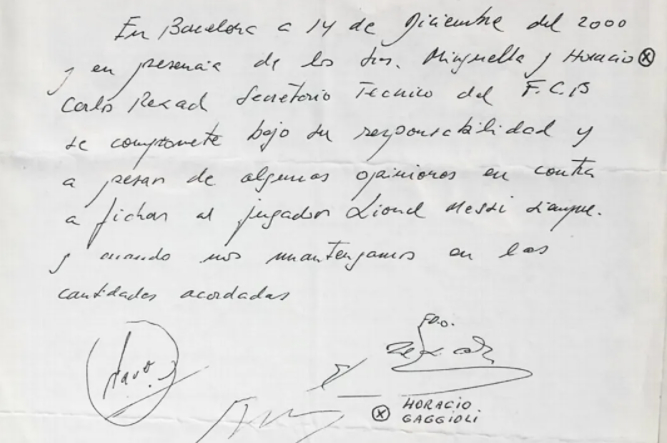 En Barcelona a 14 de Diciembre del 2000
y en presencia de los Srs. Minguella y Horacio ⊗
Carlos Rexach Secretario Tecnico del F.C.B
se compromete bajo su responsabilidad y
a pesar de algunas opiniones en contra
a fichar al jugador Lionel Messi siempre.
y cuando nos mantengamos en las
cantidades acordadas
Fdo.
⊗ HORACIO
GAGGIOLI